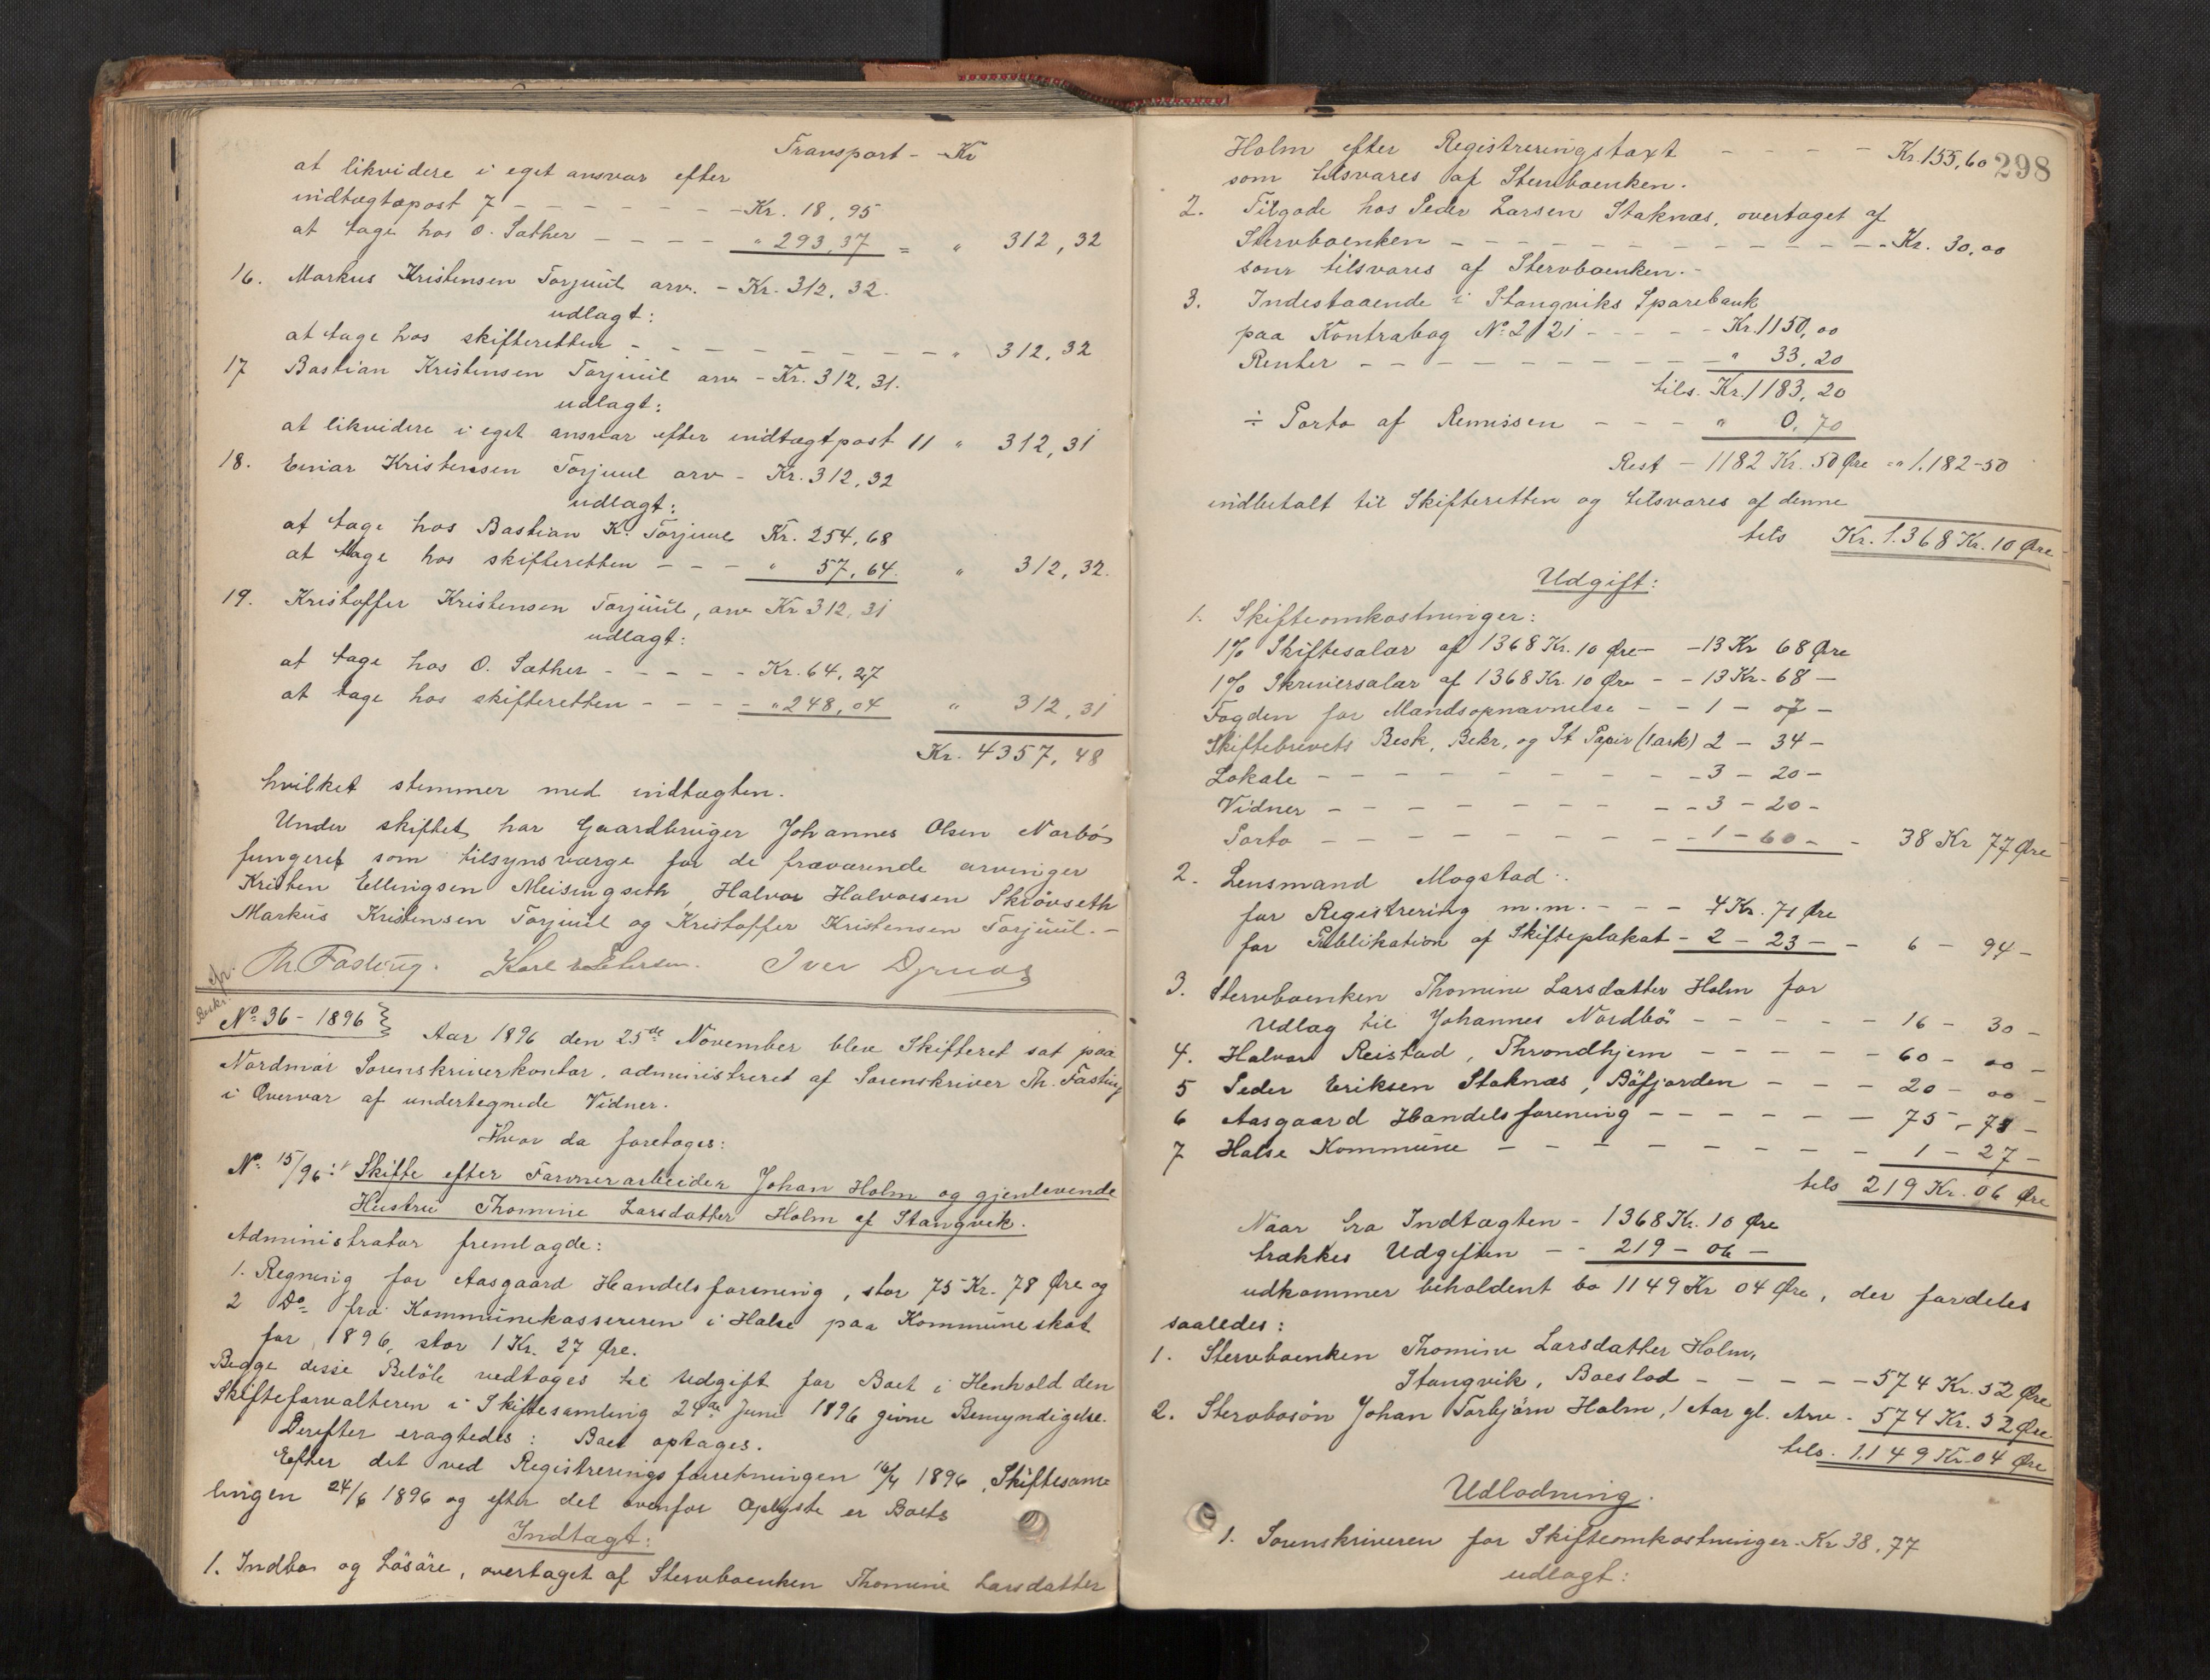 Transport - Kr
at likvidere i eget ansvar efter
indtægtspost 7 - - - - - - Kr. 18,95
at tage hos O. Sæther - - - - " 293,37 = " 312,32
16. Markus Kristensen Torjuul arv. - Kr. 312,32.
udlagt:
at tage hos skifteretten - - - - - - - - " 312,32
17 Bastian Kristensen Torjuul arv - Kr. 312,31.
udlagt:
at likvidere i eget ansvar efter indtægtpost 11 " 312,31
18. Einar Kristensen Torjuul arv - Kr. 312,32
udlagt:
at tage hos Bastian K. Torjuul Kr. 254,68
at tage hos skifteretten - - - " 57,64. " 312,32.
19. Kristoffer Kristensen Torjuul, arv Kr 312,31
udlagt:
at tage hos O. Sæther - - - - - Kr. 64,27
at tage hos skifteretten - - - - " 248,04 " 312,31
Kr. 4357,48
hvilket stemmer med indtægten.
Under skiftet har Gaardbruger Johannes Olsen Norbø
fungeret som tilsynsværge for de fraværende arvinger
Kristen Ellingsen Meisingseth, Halvor Halvorsen Skrövseth
Markus Kristensen Torjuul og Kristoffer Kristensen Torjuul. -
Th. Fasting. Karl Iver
Beskr.
No. 36 - 1896 } Aar 1896 den 25de November blev Skifteret sat paa
Nordmør Sorenskriverkontor, administreret af Sorenskriver Th. Fasting
i Overvær af undertegnede Vidner.
Hvor da foretoges:
No. 15/96: Skifte efter Farverarbeider Johan Holm og gjenlevende
Hustru Thomine Larsdatter Holm af Stangvik.
Administrator fremlagde:
1. Regning for Aasgaard Handelsforening, stor 75 Kr. 78 Øre og
2 Do fra Kommunekassereren i Halse paa Kommuneskat
for 1896, stor 1 Kr. 27 Øre.
Begge disse Beløb vedtoges til Udgift for Boet i Henhold den
Skifteforvalteren i Skiftesamling 24de Juni 1896 givne Bemyndigelse.
Derefter eragtedes: Boet optages.
Efter det ved Registreringsforretningen 16/4 1896, Skiftesam-
lingen 24/6 1896 og efter det ovenfor Oplyste er Boets
Indtægt:
1. Indbo og Løsøre, overtaget af Stervboenken Thomine Larsdatter
298
Holm efter Registreringstaxt - - - - Kr. 155,60
som tilsvares af Stervboenken.
2. Tilgode hos Peder Larsen Staknæs, overtaget af
Stervboenken - - - - - - - - - - - - Kr. 30,00
som tilsvares af Stervboenken. -
3. Indestaaende i Stangviks Sparebank
paa Kontrabog No. 2121 - - - - - Kr. 1150,00
Renter - - - - - - - - - - " 33,20
tils. Kr. 1183,20
÷ Porto af Remissen - - - " 0,70
Rest - 1182 Kr. 50 Øre = " 1.182-50
indbetalt til Skifteretten og tilsvares af denne
tils Kr. 1.368 Kr. 10 Øre
Udgift:
1. Skifteomkostninger:
1% Skiftesalær af 1368 Kr. 10 Øre - - 13 Kr 68 Øre
1% Skriversalær af 1368 Kr. 10 Øre - - 13 Kr - 68 -
Fogden for Mandsopnævnelse - - 1 - 07 -
Skiftebrevets Besk, Bekr, og St Papir (1 ark) 2 - 34 -
Lokale - - - - - - - - - 3 - 20 -
Vidner - - - - - - - - - 3 - 20 -
Porto - - - - - - - - 1 - 60 - - 38 Kr 77 Øre
2. Lensmand Mogstad:
for Registrering m.m. - - - 4 Kr. 71 Øre
for Publikation af Skifteplakat - 2 - 23 - - 6 - 94 -
3. Stervboenken Thomine Larsdatter Holm for
Udlæg til Johannes Nordbø - - - - - 16 - 30 -
4. Halvor Reistad, Throndhjem - - - - - 60 - 00 -
5 Peder Eriksen Staknæs, Bøfjorden - - - 20 - 00 -
6 Aasgaard Handelsforening - - - - - - 75 - 78 -
7 Halse Kommune - - - - - - - - 1 - 27 -
tils 219 Kr. 06 Øre
Naar fra Indtægten - 1368 Kr. 10 Øre
trækkes Udgiften - - 219 - 06 -
udkommer beholdent bo 1149 Kr 04 Øre, der fordeles
saaledes:
1. Stervboenken Thomine Larsdatter Holm,
Stangvik, Boeslod - - - - - 574 Kr. 52 Øre
2. Stervbosøn Johan Torbjørn Holm, 1 Aar gl. Arv - 574 Kr. 52 Øre
tils. 1.149 Kr. 04 Øre
Udlodning.
1. Sorenskriveren for Skifteomkostninger. Kr 38,77
udlagt: